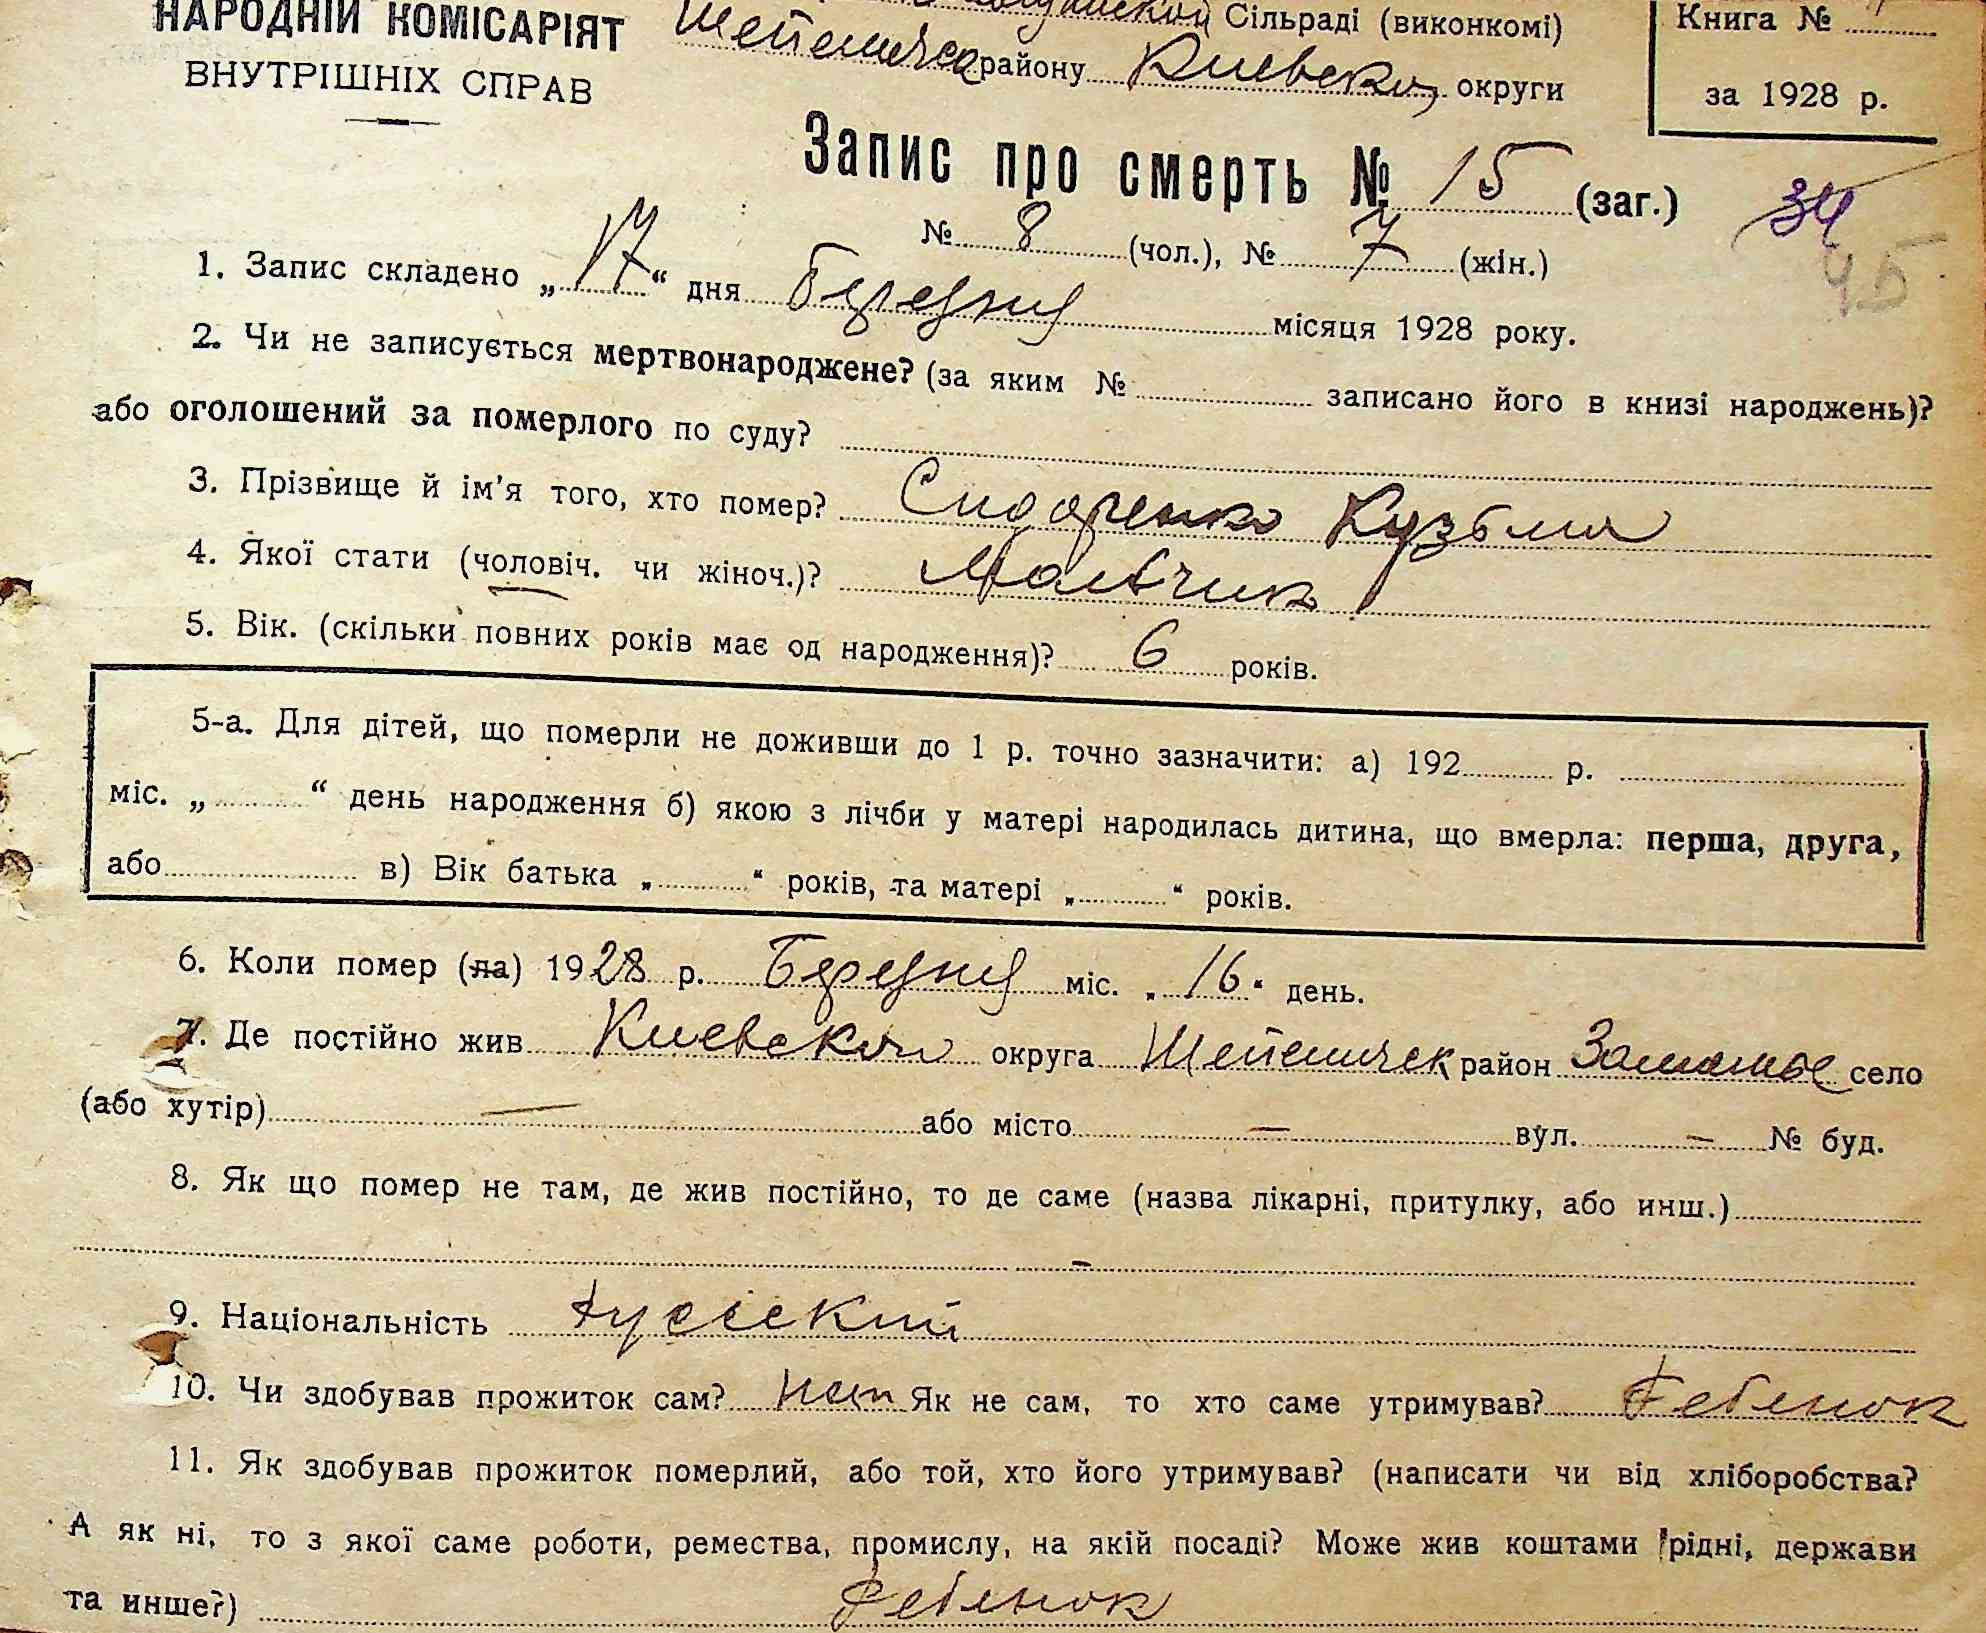 НАРОДНІЙ КОМІСАРІЯТ
ВНУТРІШНІХ СПРАВ
Сільраді (виконкомі)
району Киевской округи
Книга №
за 1928 р.
Запис про смерть № 15 (заг.)
34
45
№ 8 (чол.), № 7 (жін.)
1. Запис складено „17“ дня Березня місяця 1928 року.
2. Чи не записується мертвонароджене? (за яким № записано його в книзі народжень)?
або оголошений за померлого по суду?
3. Прізвище й ім'я того, хто помер? Сидоренко Кузьма
4. Якої стати (чоловіч. чи жіноч.)? Мальчик
5. Вік. (скільки повних років має од народження)? 6 років.
5-а. Для дітей, що померли не доживши до 1 р. точно зазначити: а) 192 р.
міс. „ “ день народження б) якою з лічби у матері народилась дитина, що вмерла: перша, друга,
або в) Вік батька „ “ років, та матері „ “ років.
6. Коли помер (ла) 1928 р. Березня міс. „16“ день.
7. Де постійно жив Киевской округа район село
(або хутір) — або місто — вул. — № буд.
8. Як що помер не там, де жив постійно, то де саме (назва лікарні, притулку, або инш.)
–
9. Національність русский
10. Чи здобував прожиток сам? Нет Як не сам, то хто саме утримував? Ребенок
11. Як здобував прожиток померлий, або той, хто його утримував? (написати чи від хліборобства?
А як ні, то з якої саме роботи, ремества, промислу, на якій посаді? Може жив коштами рідні, держави
та инше?) Ребенок